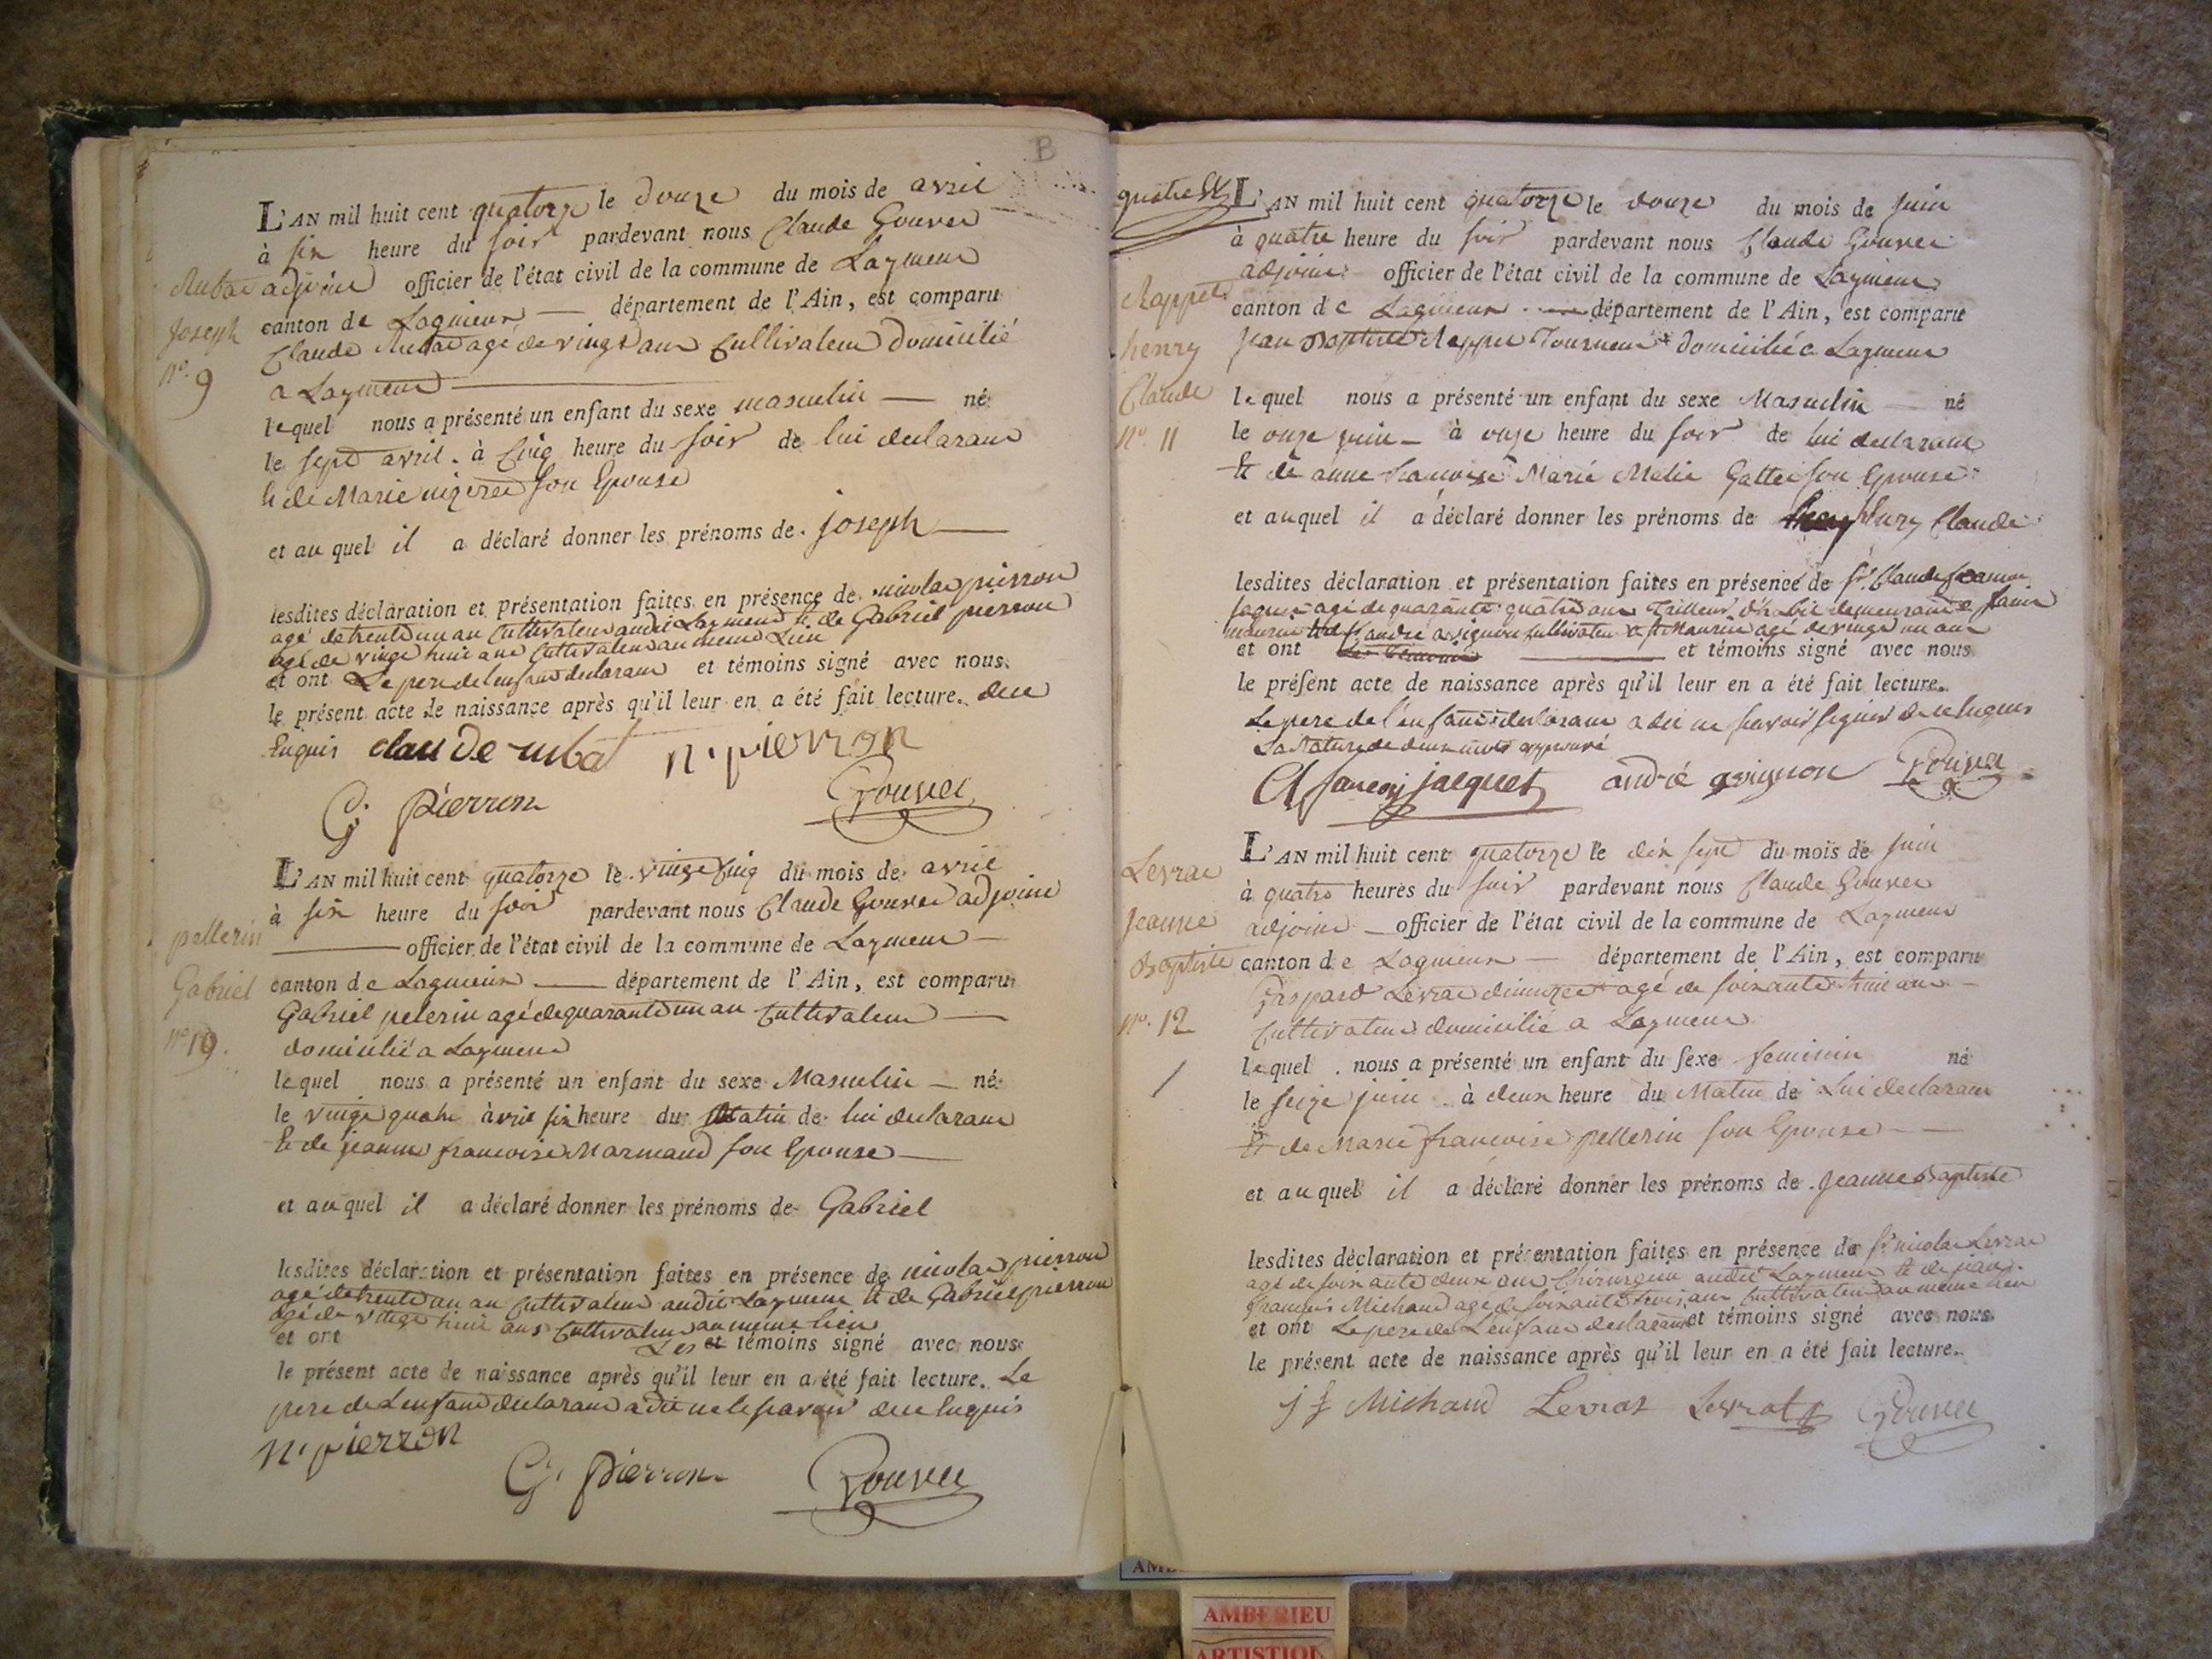 B
L'AN mil huit cent quatorze le douze du mois de avril
à six heure du soir pardevant nous Claude Gouvet
adjoint officier de l'état civil de la commune de Lagnieux
canton de Lagnieux département de l'Ain, est comparu
Claude Rubat agé de vingt ans Cultivateur domicilié
a Lagnieux
Rubat
Joseph
n° 9
lequel nous a présenté un enfant du sexe masculin né
le sept avril à Cinq heure du soir de lui declarant
Et de Marie son Epouse
et auquel il a déclaré donner les prénoms de joseph
lesdites déclaration et présentation faites en présence de nicolas pierron
agé de trente un an Cultivateur audit Lagmeux Et de Gabriel pierron
agé de vingt huit ans Cultivateur au meme Lieu
et ont Le pere de l'enfant declarant et témoins signé avec nous
le présent acte de naissance après qu'il leur en a été fait lecture. dece
Enquis claude rubat n. pierron
G. pierron Gouvet
L'AN mil huit cent quatorze le vingt Cinq du mois de avril
à six heure du soir pardevant nous Claude Gouvet adjoint
officier de l'état civil de la commune de Lagmeux
canton de Lagnieux département de l'Ain, est comparu
Gabriel pelerin agé de quarante un an Cultivateur
domicilié a Lagmeux
pellerin
Gabriel
n° 10
lequel nous a présenté un enfant du sexe Masculin né
le vingt quatre avril six heure du Matin de lui declarant
Et de jeanne francoise Marmand son Epouse
et auquel il a déclaré donner les prénoms de Gabriel
lesdites déclaration et présentation faites en présence de nicolas pierron
agé de trente un an Cultivateur audit Lagmeux Et de Gabriel pierron
agé de vingt huit ans Cultivateur au meme lieu
et ont Les et témoins signé avec nous
le présent acte de naissance après qu'il leur en a été fait lecture. Le
pere de Lenfant declarant a dit ne le savoir dece Enquis
n. pierron
G. pierron Gouvet
L'AN mil huit cent quatorze le douze du mois de juin
à quatre heure du soir pardevant nous Claude Gouvet
adjoint officier de l'état civil de la commune de Lagnieux
canton de Lagnieux département de l'Ain, est comparu
Jean Baptiste Rappet Tourneur domicilié a Lagmeux
Rappet
henry
Claude
n° 11
lequel nous a présenté un enfant du sexe Masculin né
le onze juin à onze heure du soir de lui declarant
Et de anne francoise Marie Gattet son Epouse
et auquel il a déclaré donner les prénoms de henry Claude
lesdites déclaration et présentation faites en présence de Sr Claude francois
jaquet agé de quarante quatre ans Tailleur d'habit demeurant a saint
maurice Et de Sr andré avignon Cultivateur a St Maurice agé de vingt un ans
et ont et témoins signé avec nous
le présent acte de naissance après qu'il leur en a été fait lecture.
Le pere de l'enfant declarant a dit ne savoir signer de ce Enquis
La Rature de deux mots approuvé
Cl francois jacquet andré avignon Gouvet
L'AN mil huit cent quatorze le dix sept du mois de juin
à quatre heures du soir pardevant nous Claude Gouvet
adjoint officier de l'état civil de la commune de Lagmeux
canton de Lagnieux département de l'Ain, est comparu
Gaspard Levrat agé de soixante huit ans
Cultivateur domicilié a Lagmeux
Levrat
Jeanne
Baptiste
n° 12
lequel nous a présenté un enfant du sexe feminin né
le seize juin à deux heure du Matin de Lui declarant
Et de Marie francoise pellerin son Epouse
et auquel il a déclaré donner les prénoms de Jeanne Baptiste
lesdites déclaration et présentation faites en présence de Sr nicolas Levrat
agé de soixante deux ans Chirurgien audit Lagmeux Et de jean
francois Michaud agé de soixante trois ans Cultivateur au meme lieu
et ont Le pere de L'enfant declarant et témoins signé avec nous
le présent acte de naissance après qu'il leur en a été fait lecture.
j f Michaud Levrat Levrat Gouvet
AMBERIEU